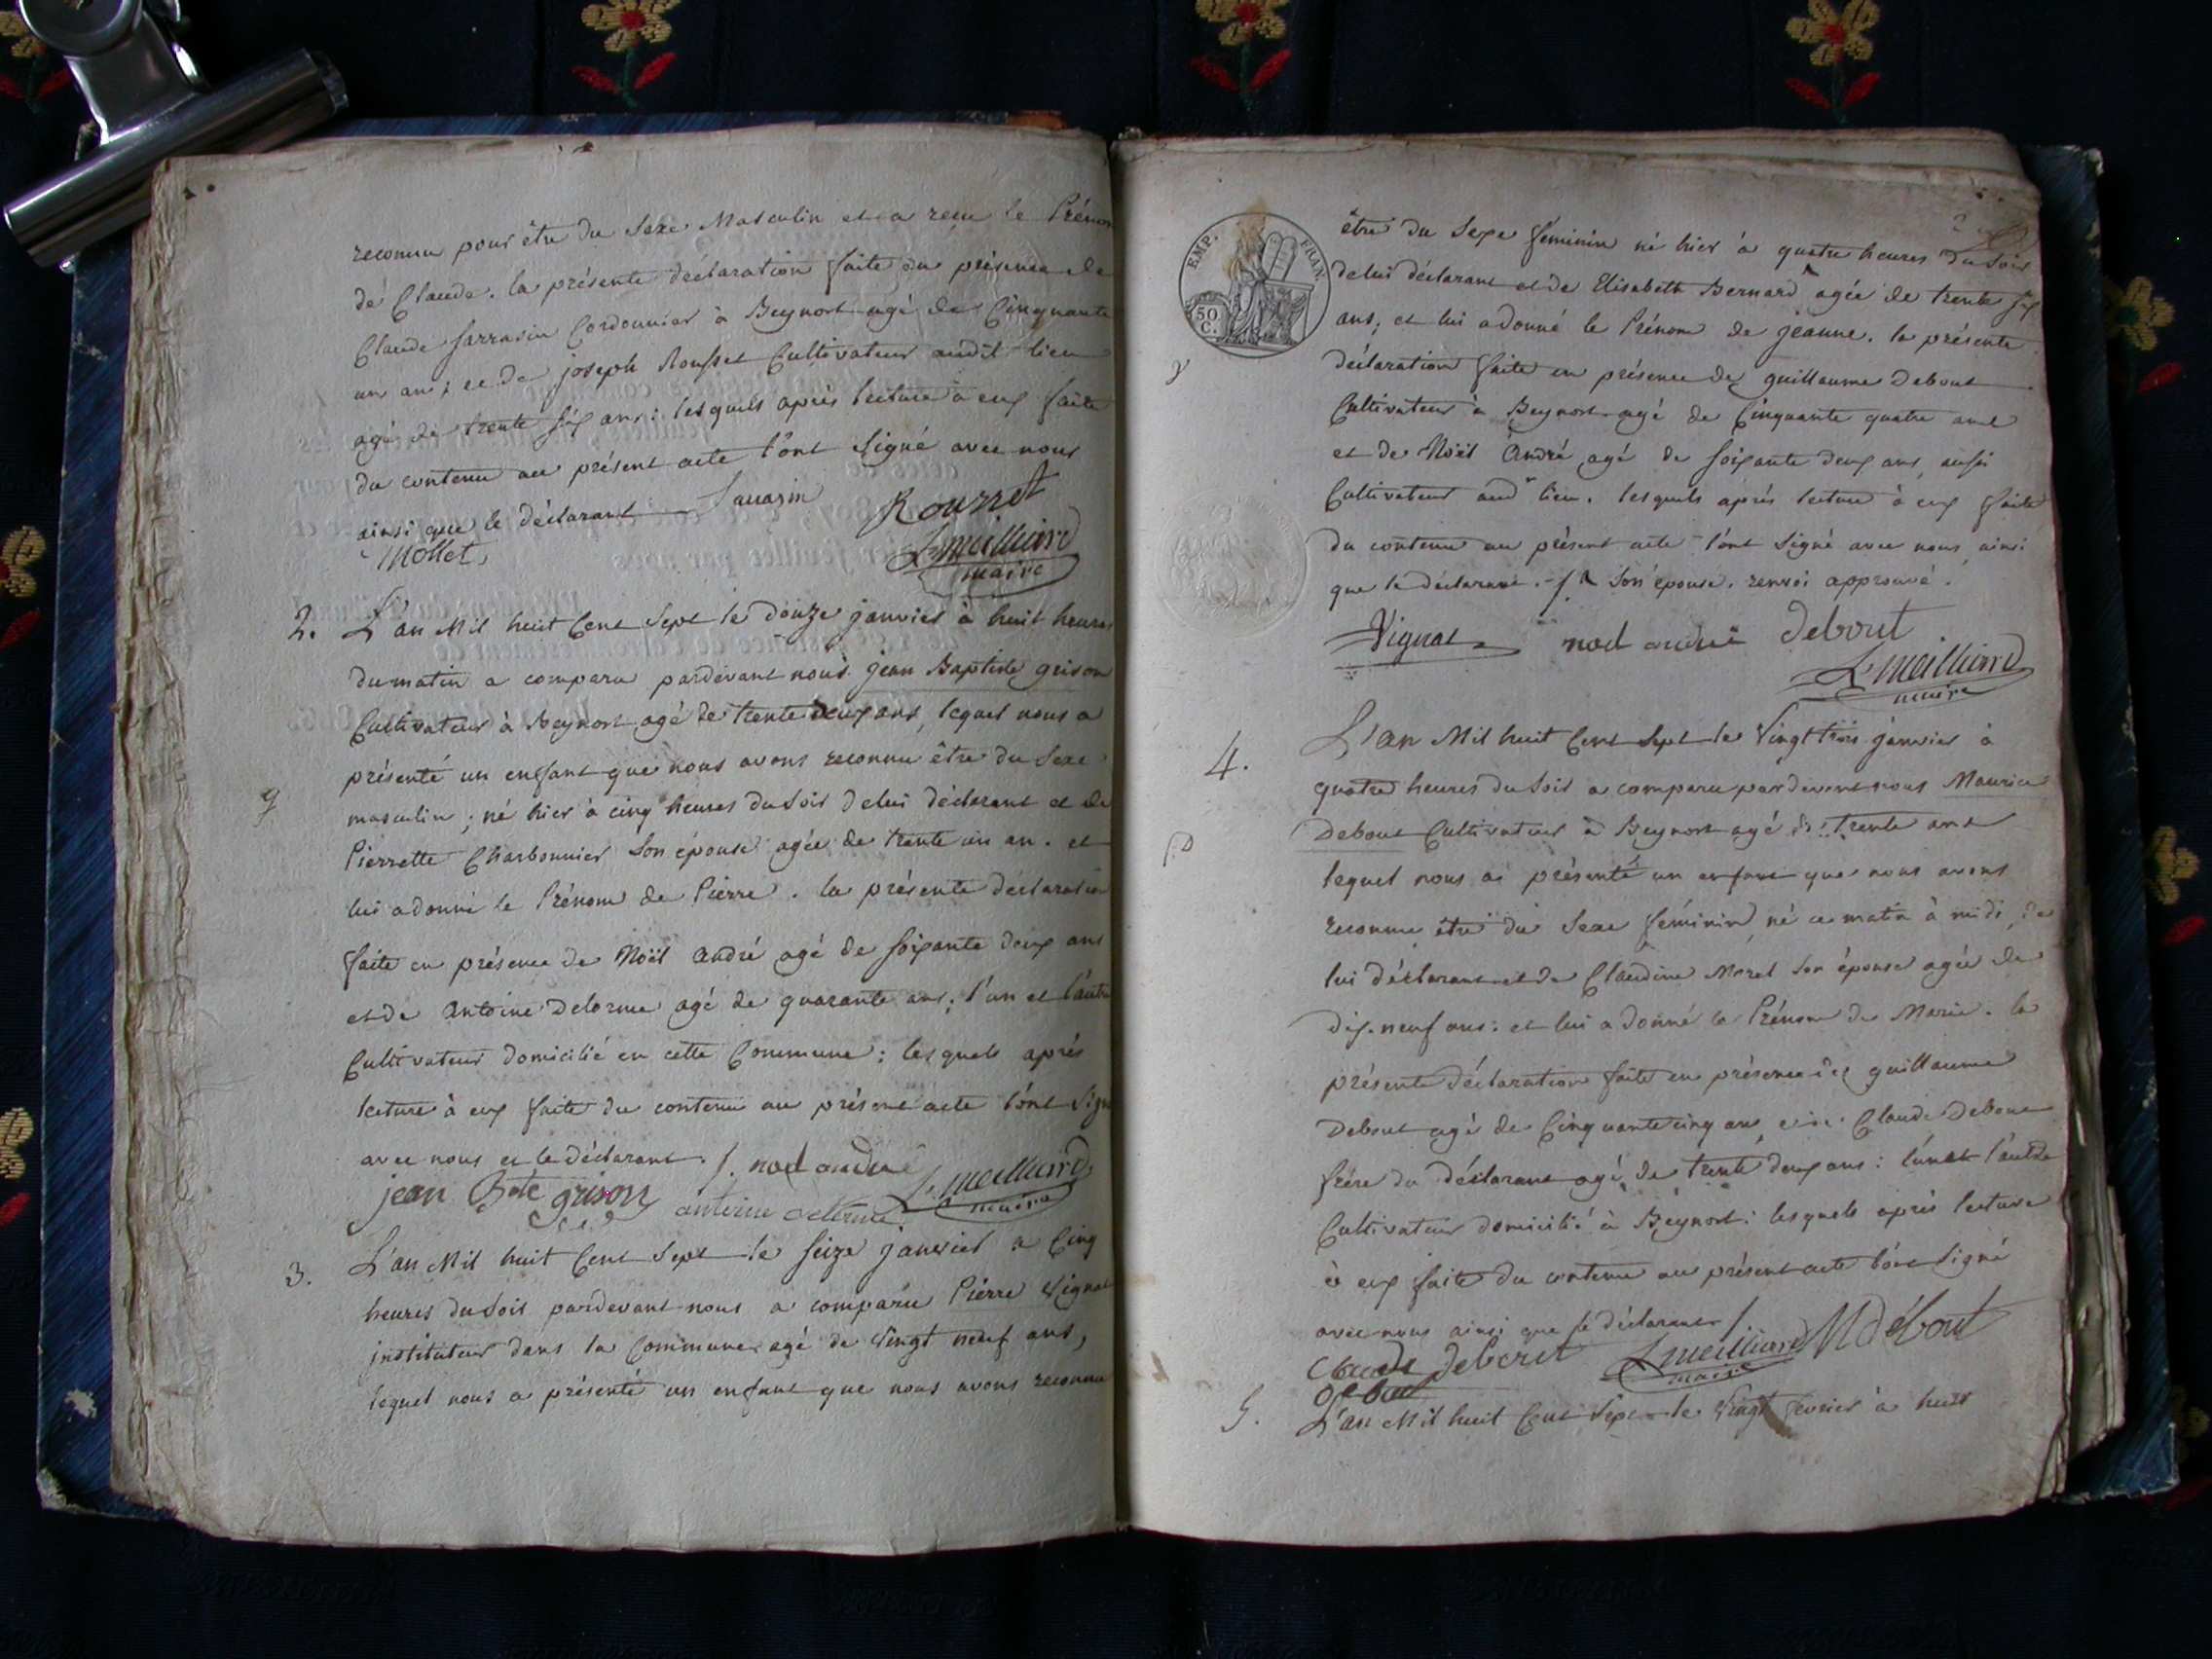 reconnu pour être du Sexe Masculin et a reçu le Prénom
de Claude. la présente déclaration faite en présence de
Claude Sarrasin Cordonnier à Beynost agé de Cinquante
un an; et de joseph Rousset Cultivateur audit lieu
agé de trente six ans: lesquels après lecture à eux faite
du contenu au présent acte l'ont Signé avec nous
ainsi que le déclarant Sarrasin Rousset
Mollet L. meilliard
maire
2. L'an Mil huit Cent Sept le douze janvier à huit heures
du matin a comparu pardevant nous jean Baptiste grison
Cultivateur à Beynost agé de trente deux ans, lequel nous a
présenté un enfant que nous avons reconnu être du Sexe
masculin; né hier à cinq heures du Soir de lui déclarant et de
g
Pierrette Charbonnier Son épouse agée de trente un an. et
lui a donné le Prénom de Pierre. la présente déclaration
faite en présence de Noël André agé de soixante deux ans
et de Antoine Delorme agé de quarante ans; l'un et l'autre
Cultivateur domicilié en cette Commune: lesquels après
lecture à eux faite du contenu au présent acte l'ont Signé
avec nous et le déclarant. /. noel andré L. meilliard
jean Bte grison antoine delorme maire
3. L'an Mil huit Cent Sept le Seize janvier a Cinq
heures du Soir pardevant nous a comparu Pierre Vignat
instituteur dans la Commune agé de Vingt neuf ans,
lequel nous a présenté un enfant que nous avons reconnu
2
EMP. FRAN.
50 C.
être du Sexe féminin né hier à quatre heures du Soir
de lui déclarant et de Elisabeth Bernard agée de trente six
ans; et lui a donné le Prénom de jeanne. la présente
déclaration faite en présence de guillaume Debout
Cultivateur à Beynost agé de Cinquante quatre ans
et de Noël André agé de soixante deux ans, aussi
Cultivateur aud lieu. lesquels après lecture à eux faite
du contenu au présent acte l'ont Signé avec nous ainsi
que le déclarant. /. Son épouse. renvoi approuvé.
Vignat noel andré debout
L. meilliard
maire
4. L'an Mil huit Cent Sept le Vingt trois janvier à
quatre heures du Soir a comparu pardevant nous Maurice
Debout Cultivateur à Beynost agé de trente ans
D
lequel nous a présenté un enfant que nous avons
reconnu être du Sexe féminin, né ce matin à midi, de
lui déclarant et de Claudine Morel Son épouse agée de
dix-neuf ans: et lui a donné le Prénom de Marie. la
présente déclaration faite en présence de guillaume
Debout agé de Cinquante cinq ans, et de Claude Debout
frère du déclarant agé de trente deux ans: l'un et l'autre
Cultivateur domicilié à Beynost: lesquels après lecture
à eux faite du contenu au présent acte l'ont Signé
avec nous ainsi que le déclarant /.
Claude debout L. meilliard M débout
debout maire
5. L'an Mil huit Cent Sept le Vingt février à huit